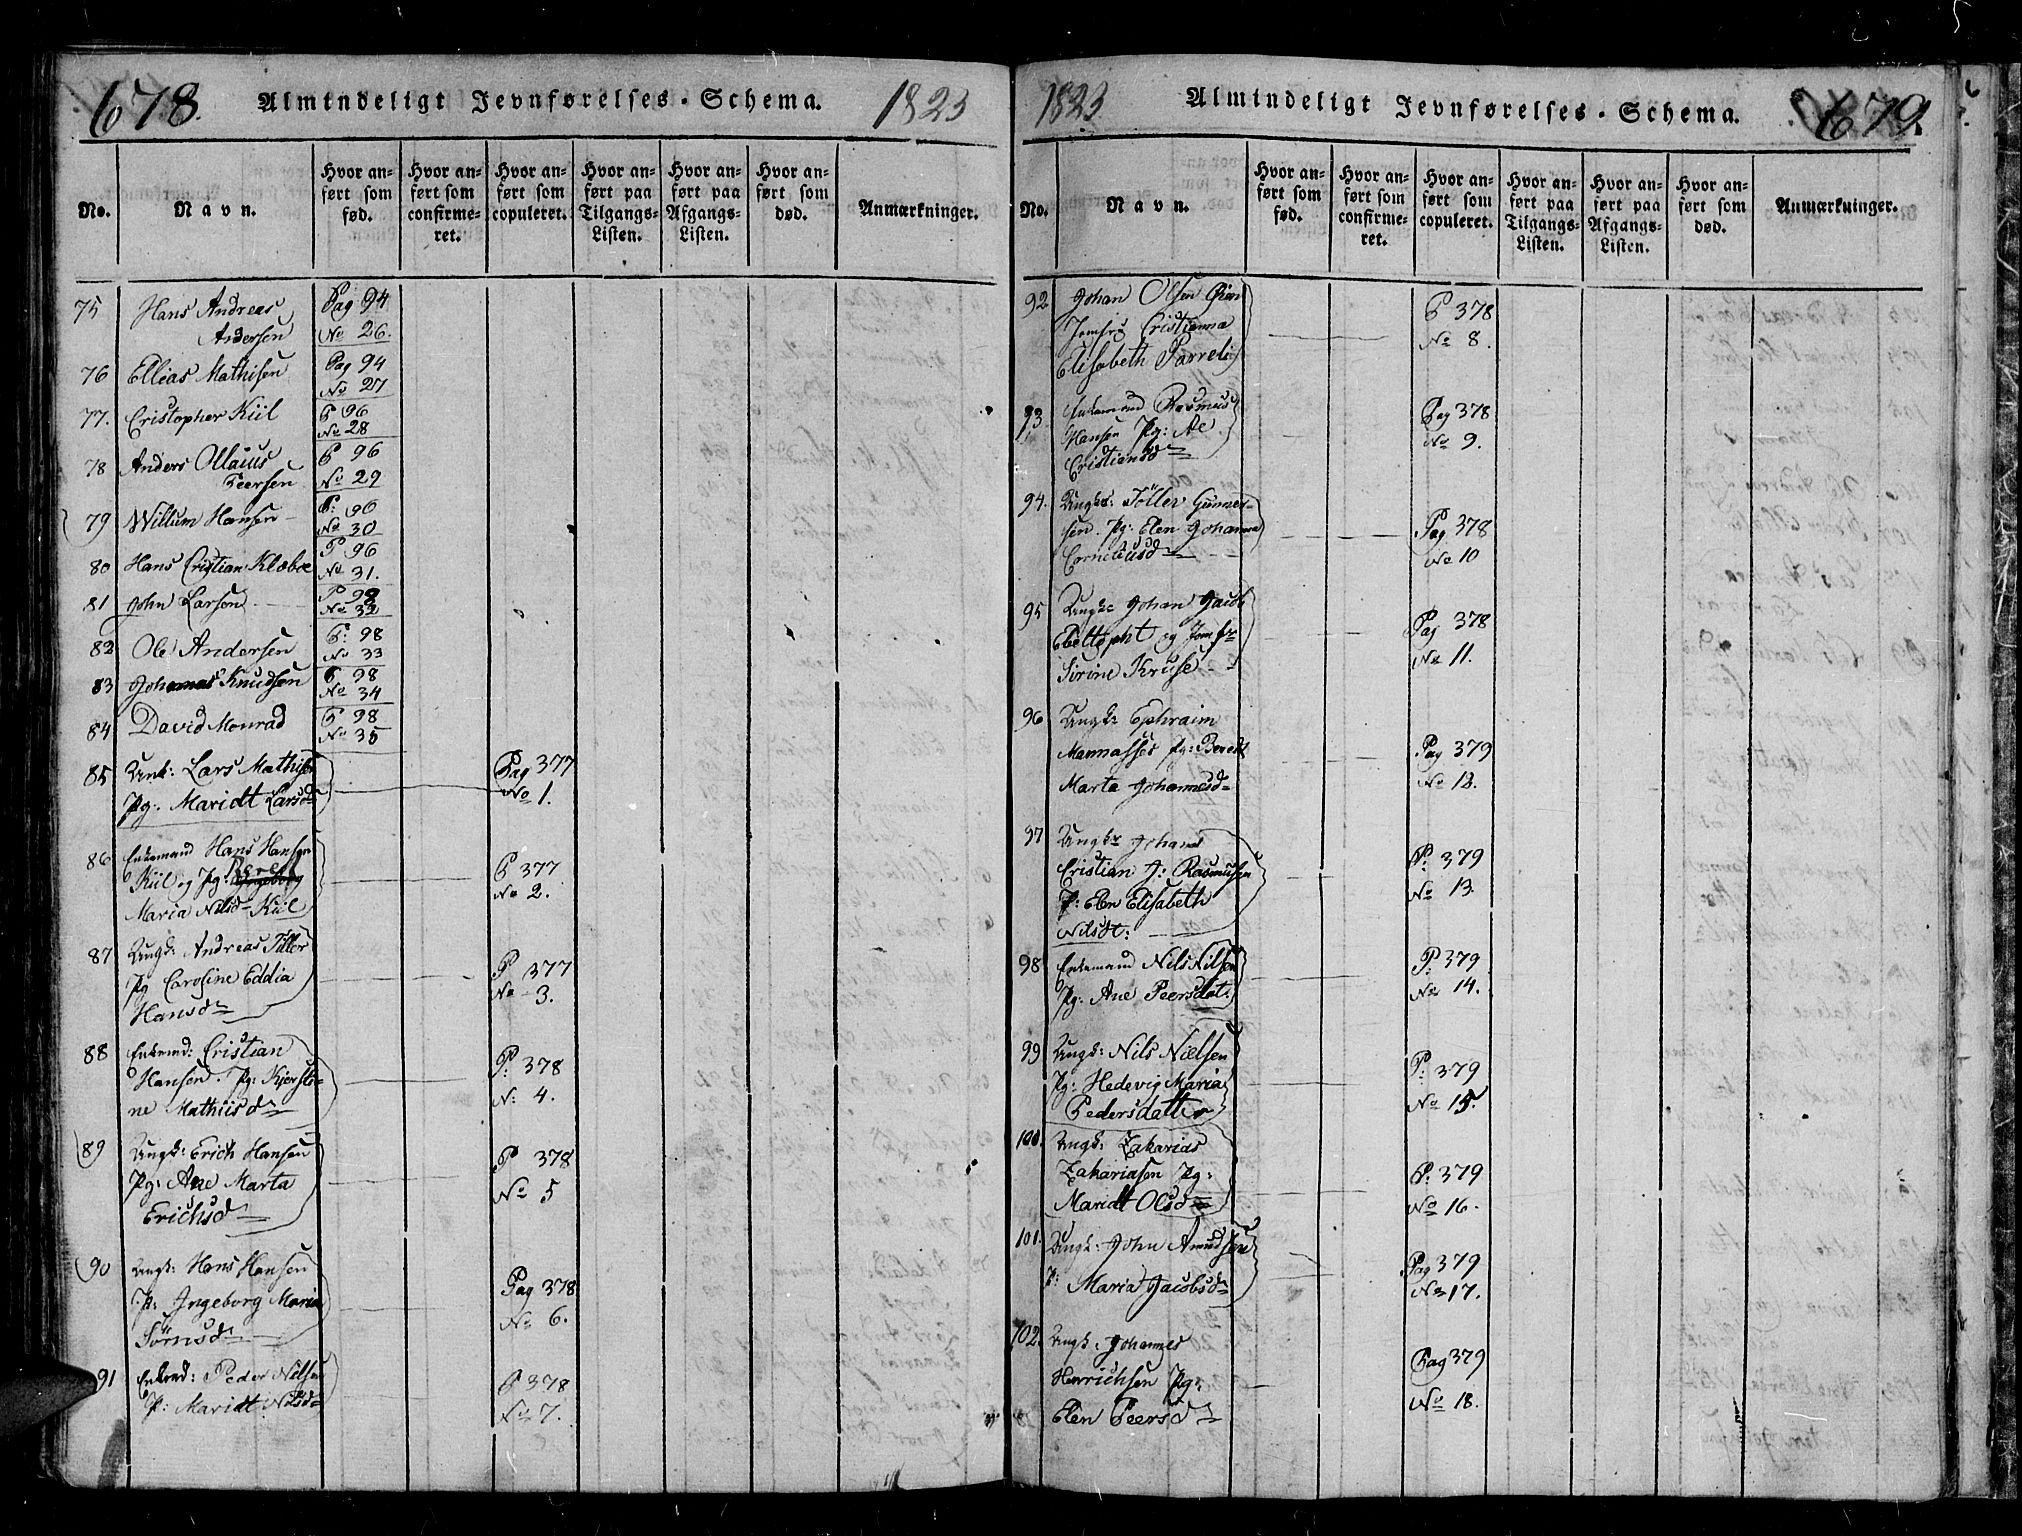 678. Almindeligt Jevnførelses-Schema. 1823
No.
Navn.
Hvor anført som fød.
Hvor anført som confirmeret.
Hvor anført som copuleret.
Hvor anført paa Tilgangs-Listen.
Hvor anført paa Afgangs-Listen.
Hvor anført som død.
Anmærkninger.
75 Hans Andreas Pag 94
Andersen No 26.
76 Ellias Mathisen Pag 94
No 27
77. Cristopher Kiil P 96
No 28
78 Anders Ollaius P 96
Peersen No 29
79 Willum Hansen P: 96
No 30
80 Hans Cristian Klæboe P 96
No 31.
81 John Larsen P 98
No 32
82 Ole Andersen P: 98
No 33
83 Johannes Knudsen P 98
No 34
84 David Monrad P 98
No 35
85 Unk: Lars Mathisen Pag 377
Pg: Maridt Larsd No 1.
86 Enkemand Hans Hansen
Kiil og Pg: Ingeborg P 377
Maria Nilsd Kiil No 2.
87 Ungk: Andreas Tiller
Pg Caroline Eddia P 377
Hansd No 3.
88 Enkemd: Cristian
Hansen. Pg: Kjersti- P: 378
ne Mathiisd N: 4.
89 Ungk: Erich Hansen P 378
Pg: Ane Marta No 5
Erichsd
90 Ungk: Hans Hansen
P: Ingeborg Maria Pag 378
Sörnsd No 6.
91 Enkmd: Peder Nilsen P 378
P: Maridt Nilsd No 7.
1823 Almindeligt Jevnførelses-Schema. 679.
No.
Navn.
Hvor anført som fød.
Hvor anført som confirmeret.
Hvor anført som copuleret.
Hvor anført paa Tilgangs-Listen.
Hvor anført paa Afgangs-Listen.
Hvor anført som død.
Anmærkninger.
92 Johan Olsen P 378
Jomfru Cristianna No 8.
Elisabeth Parreli
93. Enkemand Rasmus Pag 378
Hansen Pg: Ae No 9.
Cristiansd
94. Ungk: Töller Gunner-
sen. Pg: Elen Johanna Pag 378
Corneliusd No 10
95 Ungk: Johan Jacob Pag 378
Ebeltopht og Jomfr No 11.
Sirine Kruse
96 Ungk: Ephraim
Mannasses Pg: Beredt Pag 379
Marta Johannesd No 12.
97 Ungkr Johan P: 379
Cristian J: Rasmussen No 13.
P: Elen Elisabeth
Nilsdt:
98 Enkemand Nils Nilsen P: 379
Pg: Ane Peersdat. No 14.
99 Ungk: Nils Nielsen P: 379
Pg: Hedevig Maria No 15.
Pedersdatter
100. Ungk: Zakarias
Zakariasen Pg: P: 379
Maridt Olsd No 16.
101. Ungk: John Amundsen Pag 379
P: Maria Jacobsd No 17.
102. Ungk: Johannes
Henrichsen Pg: Pag 379
Elen Peersd No 18.